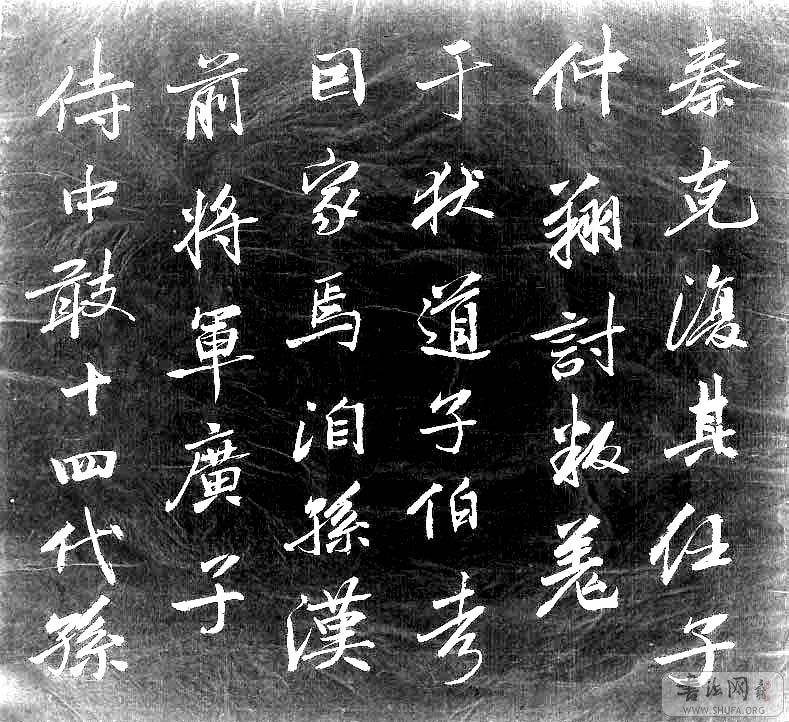 秦克復其任子
仲翔討叛羌
于狄道子伯考
囙家焉洎孫漢
前將軍廣子
侍中敢十四代孫
书法网
WWW.SHUFA.ORG